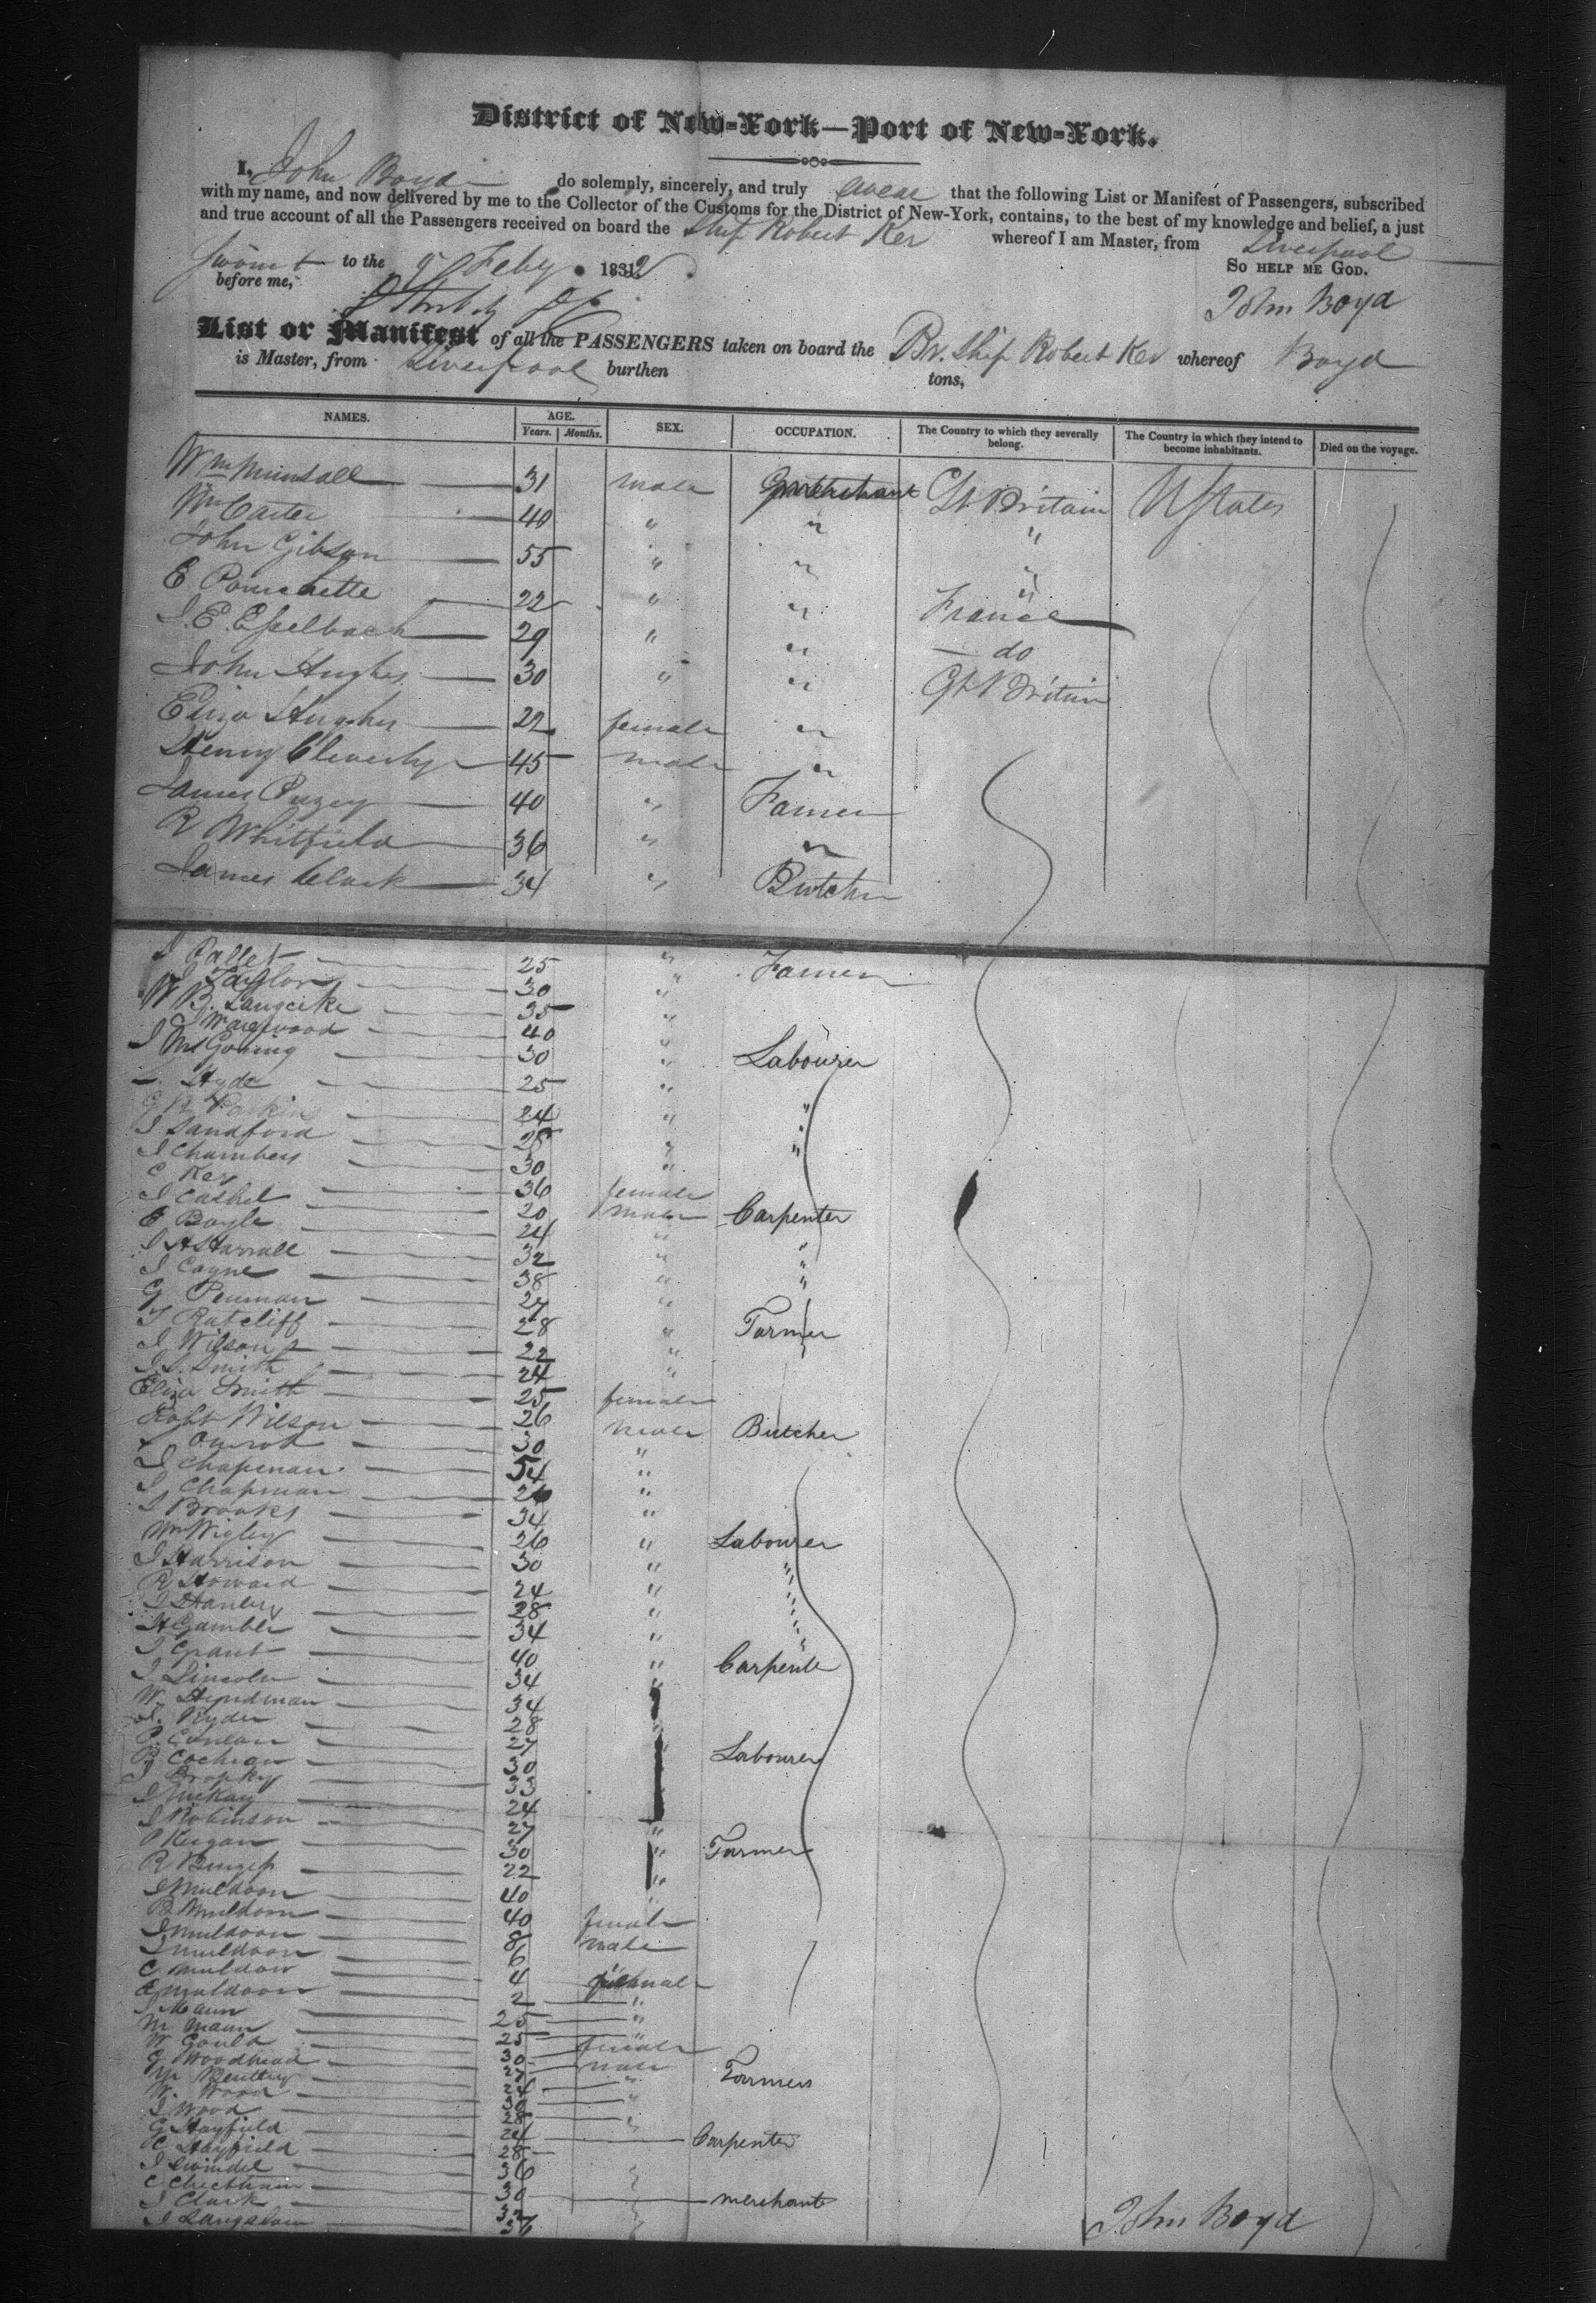 District of New-York—Port of New-York.
I, John Boyd do solemnly, sincerely, and truly swear that the following List or Manifest of Passengers, subscribed
with my name, and now delivered by me to the Collector of the Customs for the District of New-York, contains, to the best of my knowledge and belief, a just
and true account of all the Passengers received on board the Ship Robert Ker whereof I am Master, from Liverpool
Sworn to the 9 Feby 1832 So help me God.
before me, John Boyd
List or Manifest of all the PASSENGERS taken on board the Br. Ship Robert Ker whereof Boyd
is Master, from Liverpool burthen tons,
NAMES. AGE. Years. Months. SEX. OCCUPATION. The Country to which they severally belong. The Country in which they intend to become inhabitants. Died on the voyage.
Wm 31 male merchant Gt Britain U States
Wm Carter 40 " " "
John Gibson 55 " " "
E 22 " " France
J. E. 29 " " do
John Hughes 30 " " Gt Britain
Eliza Hughes 22 female "
Henry 45 male "
James Puzey 40 " Farmer
R Whitfield 36 " "
James Clark 34 " Butcher
25 " Farmer
J Taylor 30 "
W B. 35 "
40 "
J 30 " Labourer
Hyde 25 "
G 24 " "
J Sandford 28 " "
J Chambers 30 " "
C Ker 36 female
J Cashel 20 male Carpenter
E Boyle 24 "
J H Harrall 32 " "
J Coyne 38 " "
G Penman 27 "
T Ratcliff 28 " Farmer
J Wilson 22 "
J. S. Smith 24 "
Eliza Smith 25 female
Robt Wilson 26 male Butcher
30 "
J Chapman 54 "
J Chapman 26 "
J Brooks 34 "
Wm Wigley 26 " Labourer
J Harrison 30 " "
R Howard 24 " "
J Stanley 28 " "
H Gamble 34 " "
J Grant 40 " Carpente
J Lincoln 34 "
W. Hyndman 34
J. Ryder 28 "
P. Conlan 27 Labourer
P Cochran 30
J 33
J McKay 24
J Robinson 27 "
P Keegan 30 " Farmer
R 22 "
J Muldoon 40 "
B Muldoon 40 female
J Muldoon 8 male
J Muldoon 6 "
C Muldoon 4 female
E Muldoon 2 "
J Mann 25 "
M Mann 25 female
W Gould 30 male
G Woodhead 27 " Farmers
24
W. Wood 30 "
J Wood 28 "
G Hayfield 24 Carpenter
C Hayfield 28
J Swindel 36 "
C Cheetham 30 merchants
J Clark 32
J 36
John Boyd